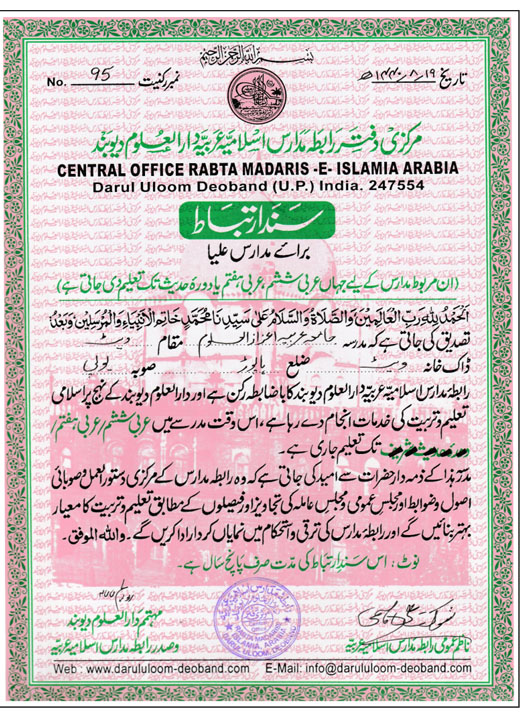 بسم اللہ الرحمن الرحیم
No. 95 نمبر رکنیت
تاریخ ۱۹/۸/۱۴۴۰ھ
مرکزی دفتر رابطہ مدارس اسلامیہ عربیہ دارالعلوم دیوبند
CENTRAL OFFICE RABTA MADARIS -E- ISLAMIA ARABIA
Darul Uloom Deoband (U.P.) India. 247554
سند ارتباط
برائے مدارس علیا
(ان مربوط مدارس کے لیے جہاں عربی ششم، عربی ہفتم یا دورۂ حدیث تک تعلیم دی جاتی ہے)
الحمد للہ رب العالمین والصلاۃ والسلام علی سیدنا محمد خاتم الأنبیاء والمرسلین وبعد!
تصدیق کی جاتی ہے کہ مدرسہ جامعہ عربیہ اعزاز العلوم مقام ویٹ
ڈاک خانہ ویٹ ضلع ہاپوڑ صوبہ یوپی
رابطہ مدارس اسلامیہ عربیہ دارالعلوم دیوبند کا باضابطہ رکن ہے اور دارالعلوم دیوبند کے نہج پر اسلامی
تعلیم و تربیت کی خدمات انجام دے رہا ہے، اس وقت مدرسے میں عربی ششم/عربی ہفتم/
تک تعلیم جاری ہے۔
مدرسہ ہذا کے ذمہ دار حضرات سے امید کی جاتی ہے کہ وہ رابطہ مدارس کے مرکزی دستور العمل و صوبائی
اصول و ضوابط اور مجلس عمومی و مجلس عاملہ کی تجاویز اور فیصلوں کے مطابق تعلیم و تربیت کا معیار
بہتر بنائیں گے اور رابطہ مدارس کی ترقی و استحکام میں نمایاں کردار ادا کریں گے۔ واللہ الموفق۔
نوٹ: اس سند ارتباط کی مدت صرف پانچ سال ہے۔
مہتمم دارالعلوم دیوبند
وصدر رابطہ مدارس اسلامیہ عربیہ
ناظم عمومی رابطہ مدارس اسلامیہ عربیہ
Web : www.darululoom-deoband.com E-Mail: info@darululoom-deoband.com